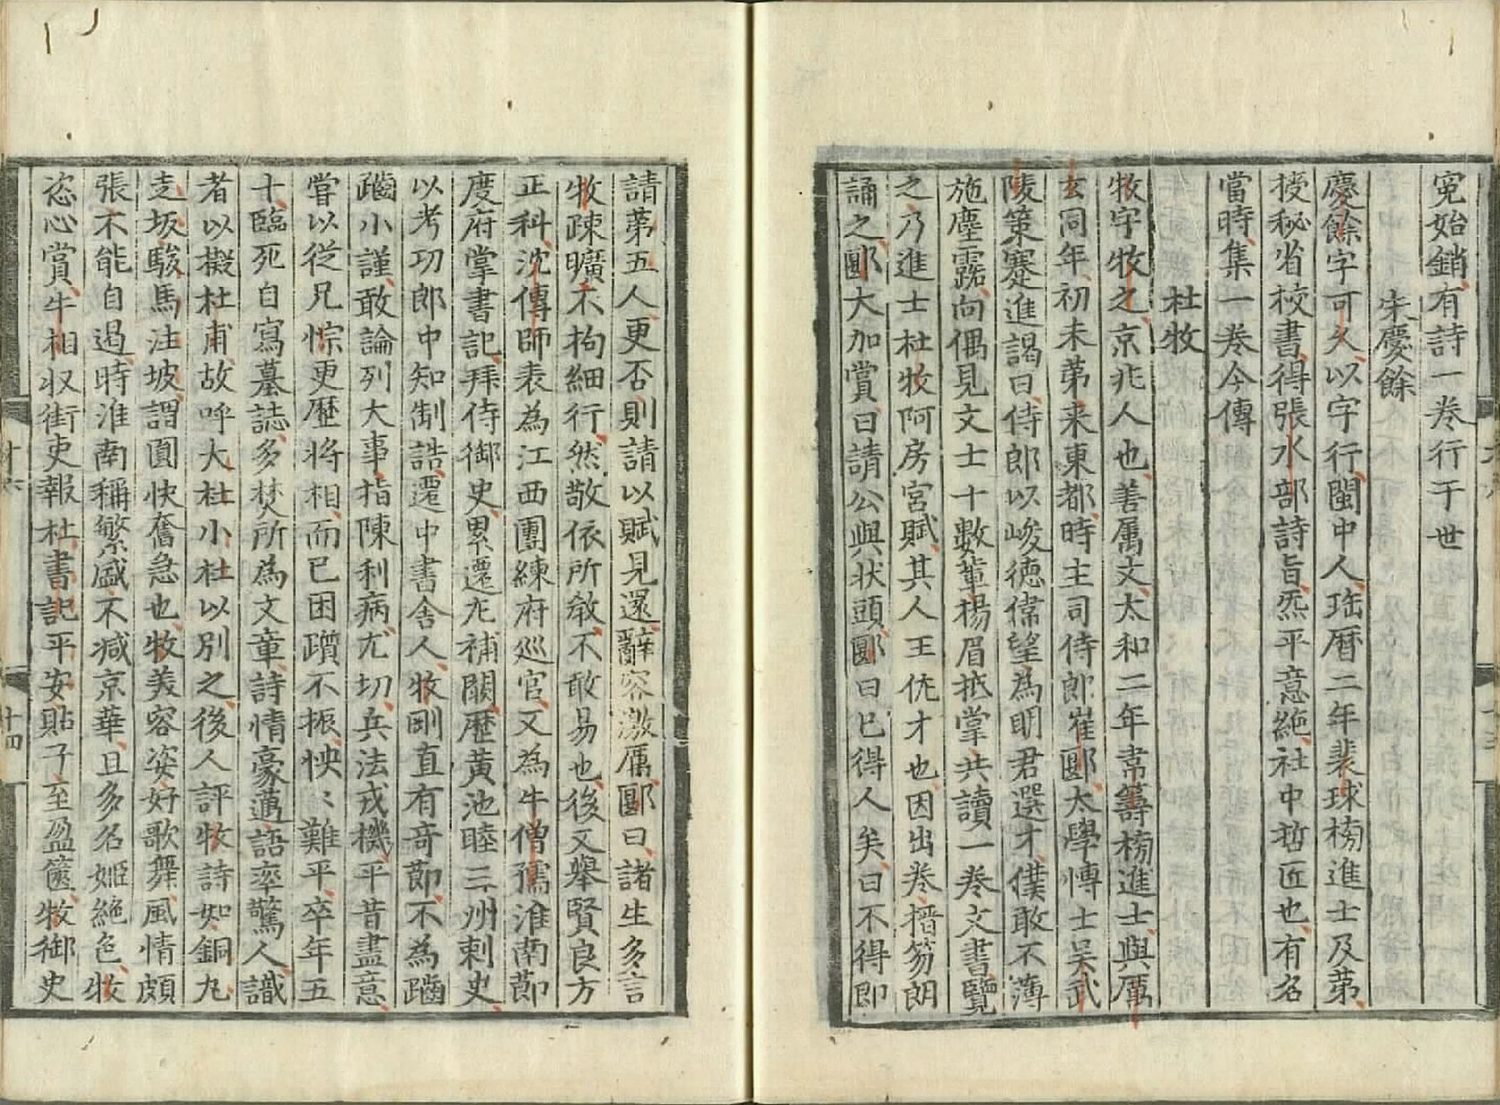 寃始銷有詩一卷行于世
朱慶餘
慶餘字可久以字行閩中人珤曆二年裴球榜進士及第
授秘省校書得張水部詩旨氣平意絶社中哲匠也有名
當時集一卷今傳
杜牧
牧字牧之京兆人也善属文太和二年韋籌榜進士與厲
玄同年初未第来東都時主司侍郎崔郾太學愽士吴武
陵策蹇進謁曰侍郎以峻德偉望為明君選才僕敢不薄
施塵露向偶見文士十數軰揚眉抵掌共讀一卷文書覽
之乃進士杜牧阿房宫賦其人王佐才也因出卷搢笏朗
誦之郾大加賞曰請公與状頭郾曰已得人矣曰不得即
請第五人更否則請以賦見還辭容激厲郾曰諸生多言
牧疎曠不拘細行然敬依所教不敢易也後又舉賢良方
正科沈傳師表為江西團練府巡官又為牛僧孺淮南節
度府掌書記拜侍御史累遷左補闕歴黄池睦三州刺史
以考功郎中知制誥遷中書舍人牧剛直有竒節不為齪
齪小謹敢論列大事指陳利病尤切兵法戎機平昔盡意
嘗以從兄悰更歴将相而已困躓不振怏〻難平卒年五
十臨死自寫墓誌多焚所為文章詩情豪邁語率驚人識
者以擬杜甫故呼大杜小杜以別之後人評牧詩如銅丸
走坂駿馬注坡謂圓快奮急也牧美容姿好歌舞風情頗
張不能自遏時淮南稱繁盛不减京華且多名姬絶色牧
恣心賞牛相収街吏報杜書記平安貼子至盈篋牧御史
十六
十四